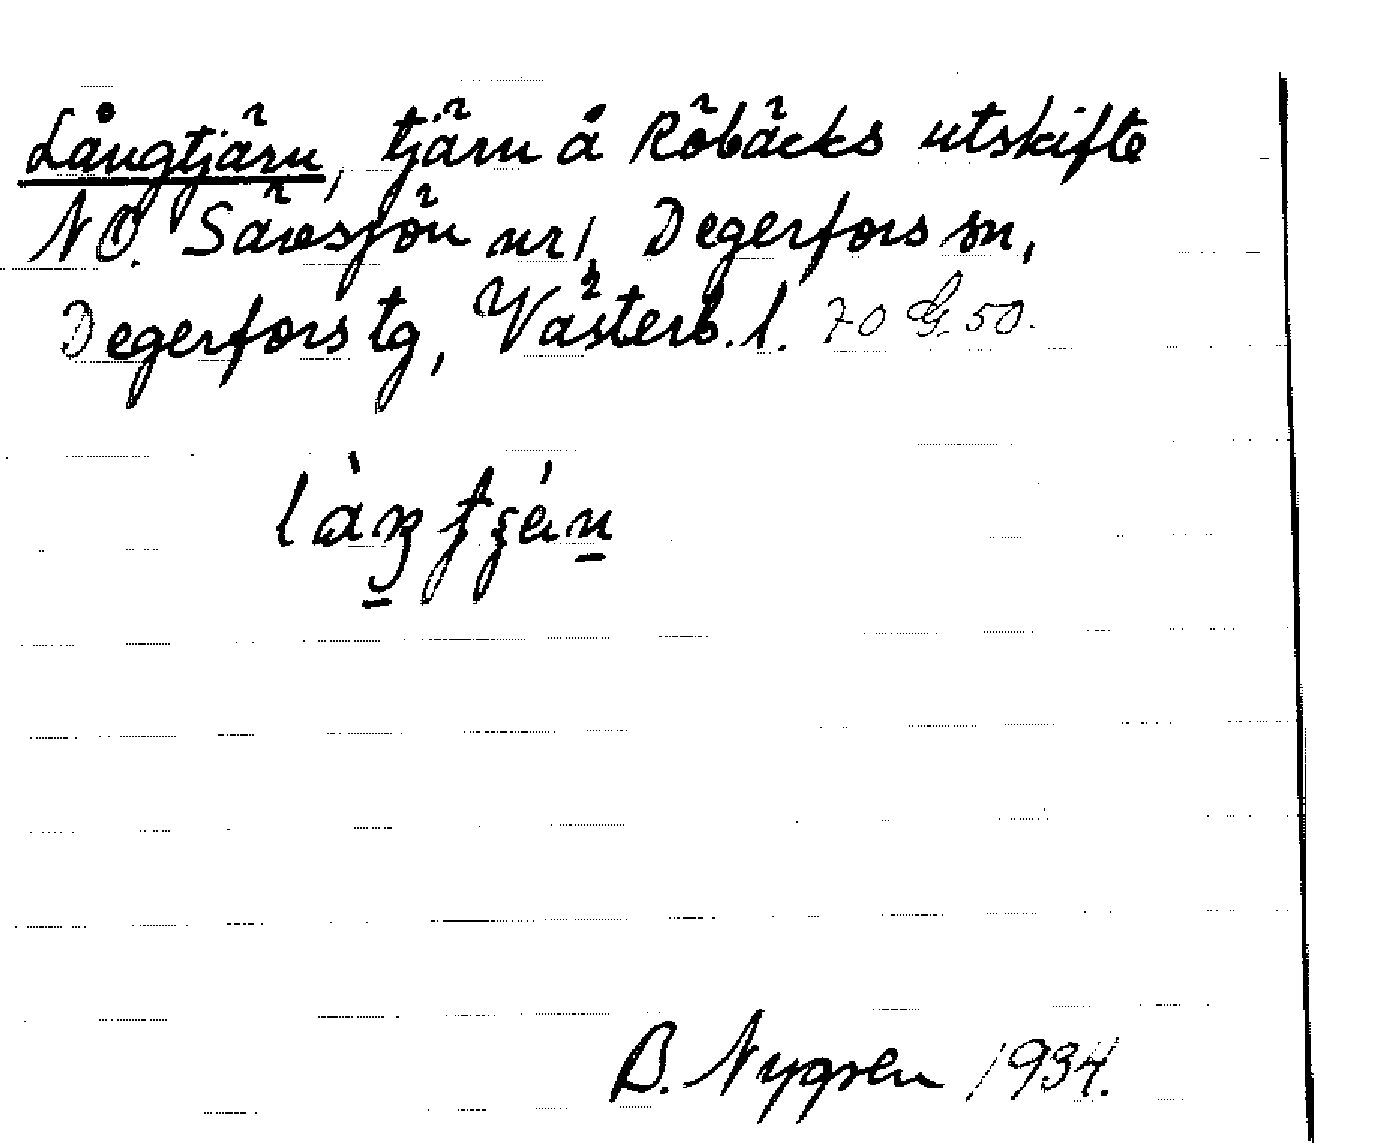 Långtjärn, tjärn å Röbäcks utskifte
NO. Sävesjön nr 1, Degerfors sn,
Degerfors tg, Västerb. l. 70 G. 50.
B. Nygren 1934.